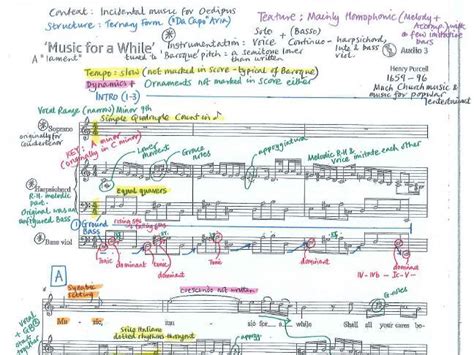 Context: Incidental music for Oedipus
Structure: Ternary Form ("Da Capo" Aria)
Texture: Mainly Homophonic (melody +
Accomp) with
a few imitative
bars
'Music for a While'
A "lament"
Instrumentation: Solo Voice + (Basso) Continuo - harpsichord,
lute & bass
viol.
tuned to 'Baroque' pitch = a semitone lower
than written
Audio 3
Tempo: slow (not marked in score - typical of Baroque)
Dynamics + Ornaments not marked in score either
Henry Purcell
1659 - 96
Much Church music &
music for popular
entertainment
INTRO (1-3)
Vocal Range (narrow) Minor 9th
Simple Quadruple Count in
Soprano
originally for
Countertenor
KEY: A minor
(originally in C minor)
lower
mordent
Grace
notes
appoggiatura
Melodic R.H &
voice imitate each other
Harpsichord
R.H. melodic
part.
Original was an
unfigured Bass
equal quavers
Ground
Bass
Bass viol
Tonic
dominant
Tonic
dominant
tonic
dominant
IV - IVb - Ic - V -
A
Syllabic
setting
crescendo not written
Mu - sic, mu - sic for a while
Shall all your cares be-
stile italiano
dotted rhythms throughout